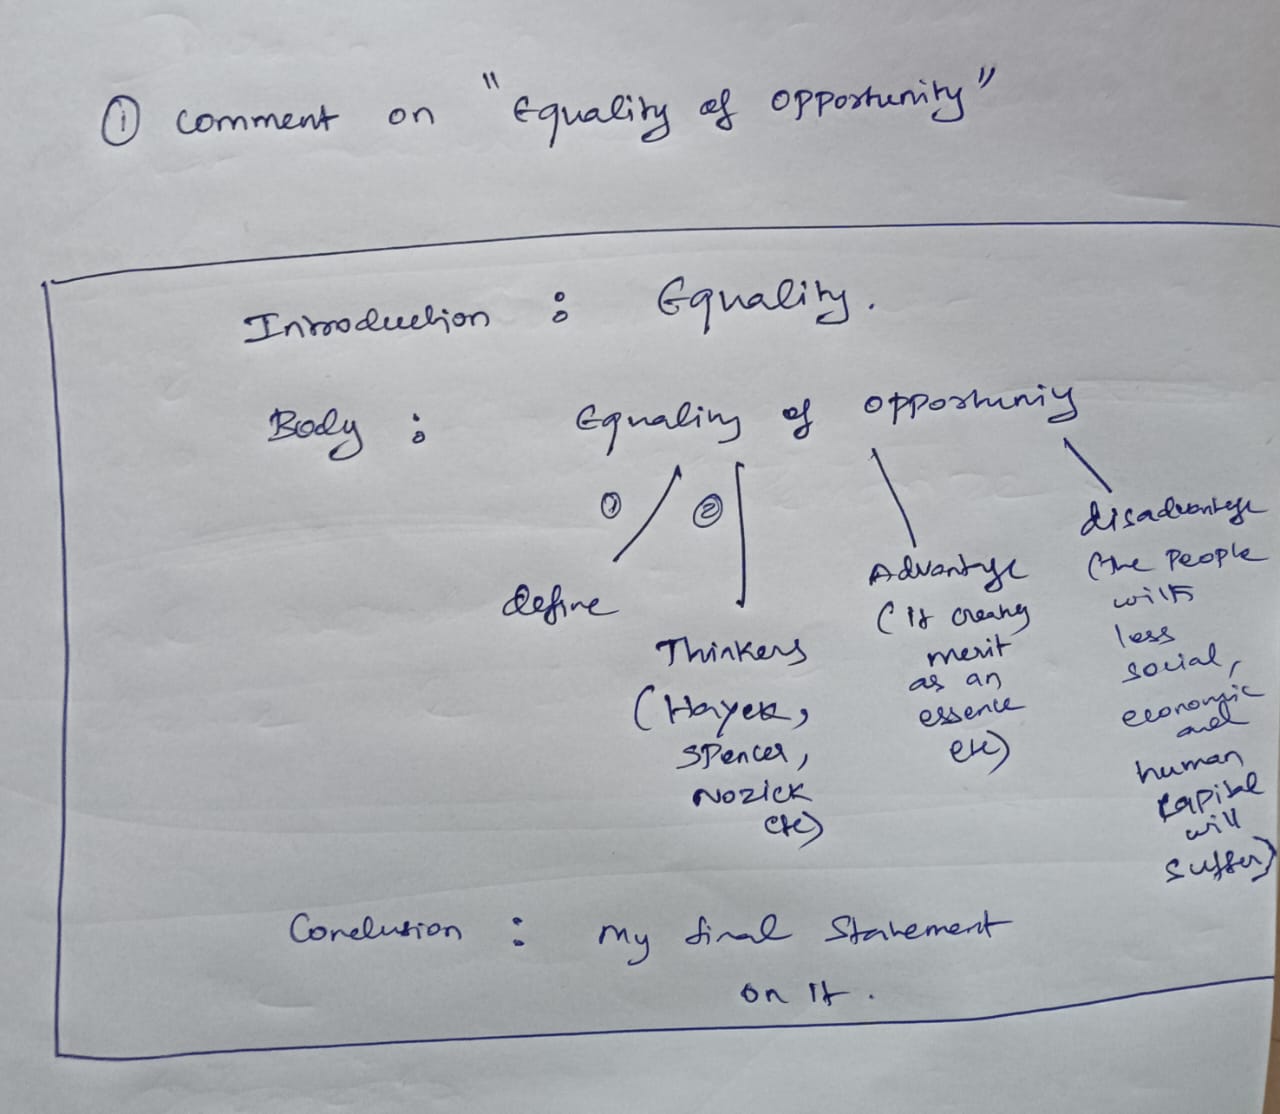 ① comment on "Equality of opportunity"
Introduction : Equality.
Body : Equality of opportuniy
① ②
define
Thinkers
(Hayek,
Spencer,
Nozick
etc)
Advantage
( It creating
merit
as an
essence
etc)
disadvantage
(the people
with
less
social,
economic
and
human
capital
will
suffer)
Conclusion : my final Statement
on it.